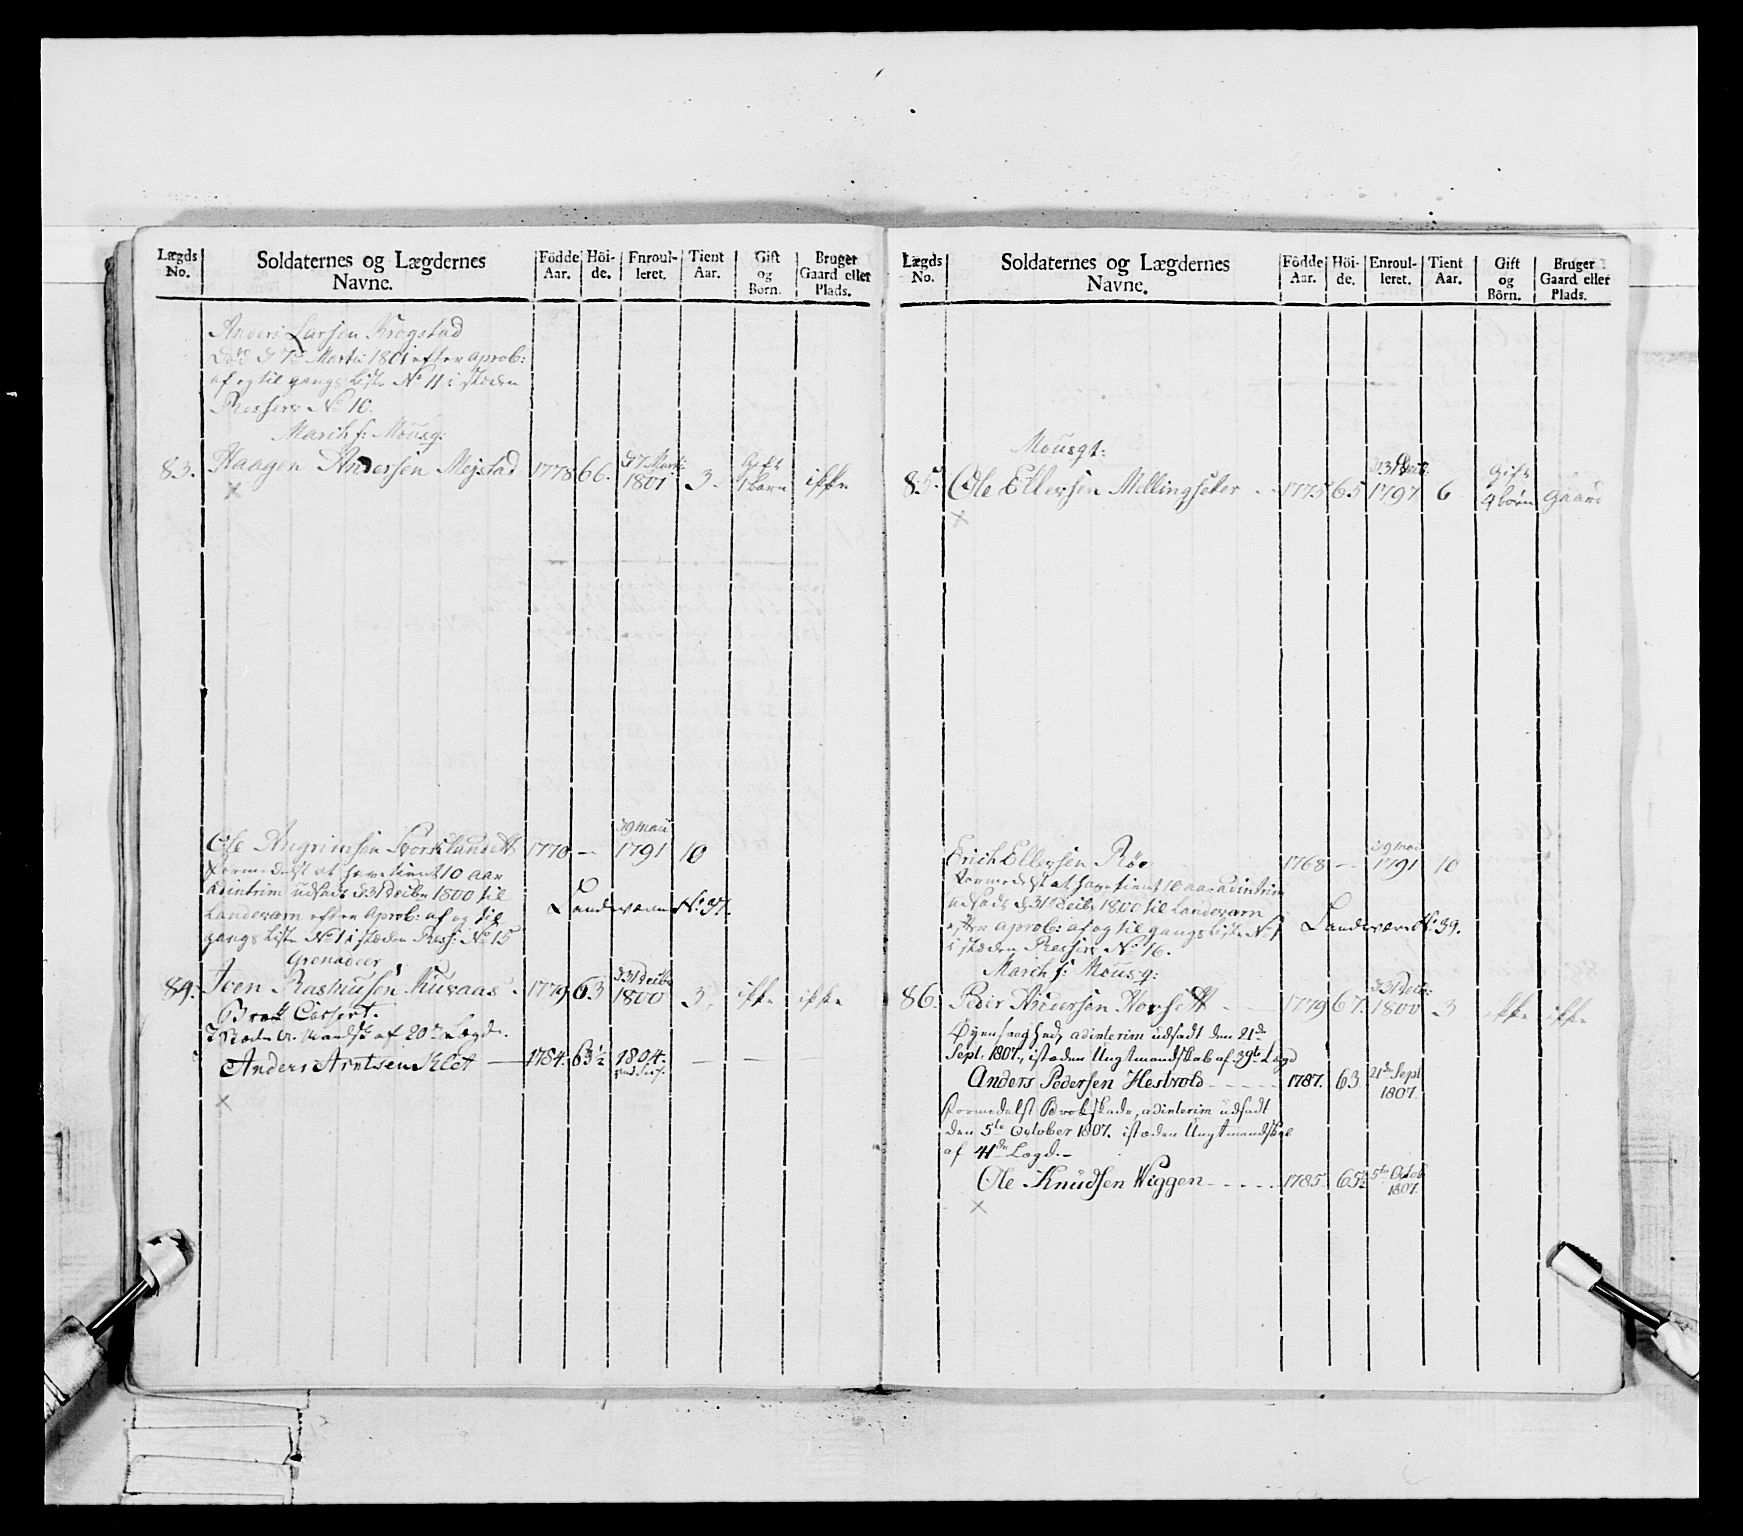 Lægds No. Soldaternes og Lægdernes Navne. Födde Aar. Höi- de. Enroul- leret. Tient Aar. Gift og Börn. Bruger Gaard eller Plads.
Anders Larsen Krogstad
Död d 7de Martii 1801 efter aprob:
af og til gangs Liste No 11 i stæden
Ressers No 10.
March f: Mousq:
83. Haagen Andersen Mejstad 1778 66. d 7 Marti 1801 3. Gift 1 barn ikke
Ole Angrimsen Svorklandett 1770 — d 9 maii 1791 10
formedelst at have tient 10 aar
adintrim udsadt d 31 Decibr 1800 til
Landeværn efter aprob: af og til
gangs Liste No 1 i stæden Ress: No 15
Landeværn No 37.
Grenadeer
84. Joen Rasmusen Kuraas 1779 63 d 31 Decibr 1800 3. ikke ikke
Brok Cassert.
I Stæden U. Mandsk af 20de Lægd.
Anders Arntsen Klet — 1784. 63½ 1804. — —
×
Lægds No. Soldaternes og Lægdernes Navne. Födde Aar. Höi- de. Enroul- leret. Tient Aar. Gift og Börn. Bruger Gaard eller Plads.
Mousqt:
85. Ole Ellersen Mellingseter 1775 65 d 31 Decb: 1797 6 Gift 4 börn gaard
×
Erich Ellersen Röe 1768 — d 9 maii 1791 10
formedelst at have tient 10 aar adintrim
udsadt d 31 Decibr 1800 til Landeværn
efter aprob: af og til gangs Liste No 1
i stæden Ressers No 16.
Landeværn No 39.
March f: Mousq:
86. Peder Andersen Horsett 1779 67. d 31 Decb: 1800 3 ikke ikke
Öyensvaghed, adinterim udsadt den 21de
Sept. 1807, istæden Ungtmandskab af 39te Lægd
Anders Pedersen Hestvold 1787. 63 21de Sept 1807.
formedelst Brokskade, adinterim udsadt
den 5te October 1807. istæden Ungtmandskab
af 41de Lægd. —
Ole Knudsen Wiggen 1785 65½ 5te Octob 1807.
×